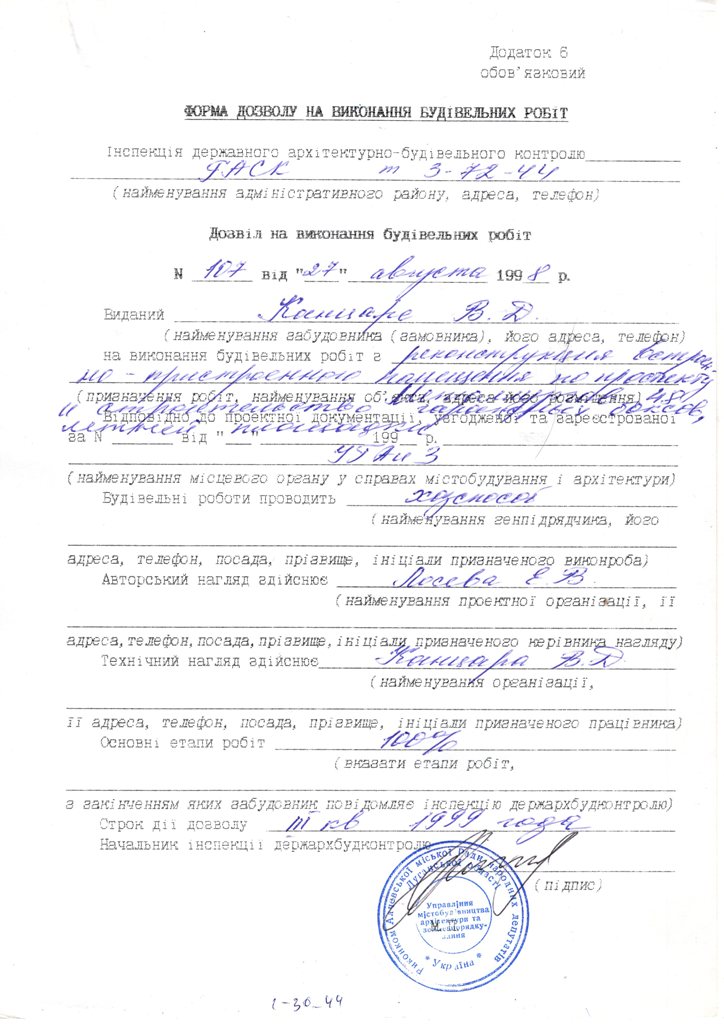 Додаток 6
обов'язковий
ФОРМА ДОЗВОЛУ НА ВИКОНАННЯ БУДІВЕЛЬНИХ РОБІТ
Інспекція державного архітектурно-будівельного контролю
ГАСК т 3-72-44
(найменування адміністративного району, адреса, телефон)
Дозвіл на виконання будівельних робіт
N 107 від "27" августа 1998 р.
Виданий Канцаре В. Д.
(найменування забудовника (замовника), його адреса, телефон)
на виконання будівельних робіт з реконструкция встрое-
но-пристроенного помещения по проспекту
(призначення робіт, найменування об'єкта, адреса його розміщення) 48
и строительство гаражных боксов,
Відповідно до проектної документації, узгодженої та зареєстрованої
летней площадки
за N від " " 199 р.
УГАиЗ
(найменування місцевого органу у справах містобудування і архітектури)
Будівельні роботи проводить хозспособ
(найменування генпідрядчика, його
адреса, телефон, посада, прізвище, ініціали призначеного виконроба)
Авторський нагляд здійснює Лосева Е. В.
(найменування проектної організації, її
адреса, телефон, посада, прізвище, ініціали призначеного керівника нагляду)
Технічний нагляд здійснює Канцара В. Д.
(найменування організації,
її адреса, телефон, посада, прізвище, ініціали призначеного працівника)
Основні етапи робіт 100%
(вказати етапи робіт,
з закінченням яких забудовник повідомляє інспекцію держархбудконтролю)
Строк дії дозволу III кв 1999 года
Начальник інспекції держархбудконтролю
(підпис)
Виконком Алчевської міської Ради народних депутатів
Луганської області
Управління
містобудівництва
архітектури та
землевпорядку-
вання
М.П.
* Україна *
1-30-44